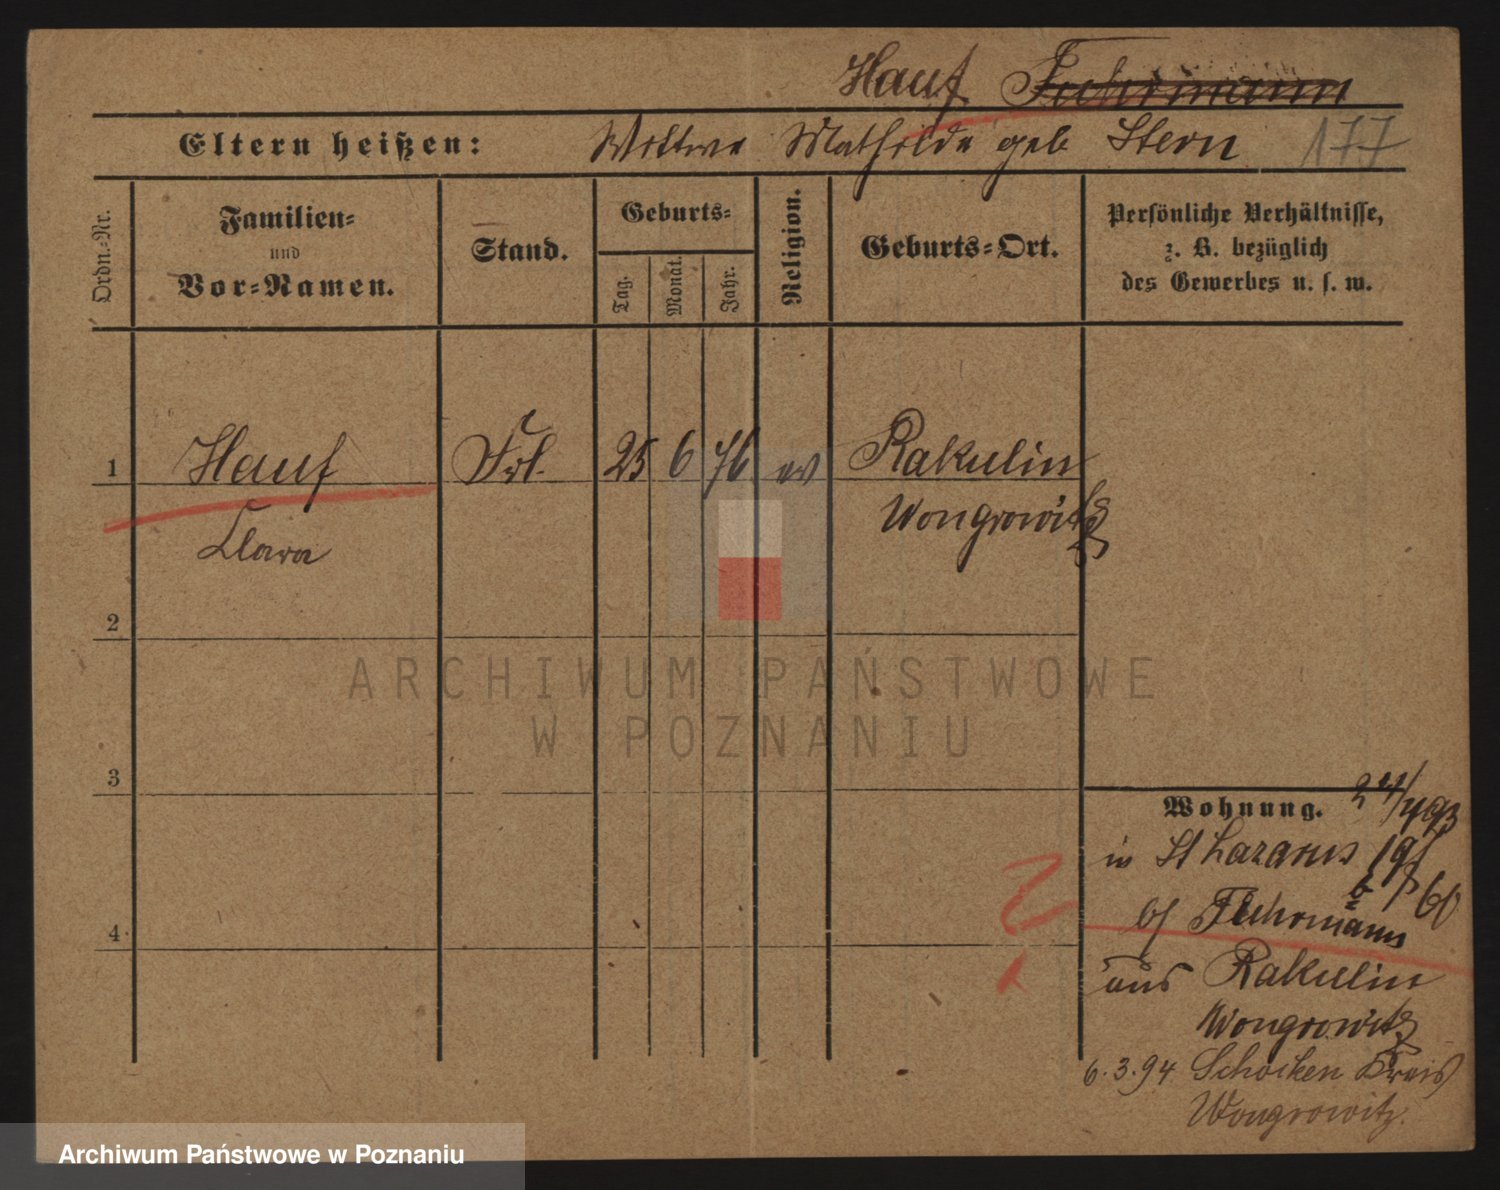 Hauf Fuhrmann
Eltern heißen: Wittwe Mathilde geb Stern 177
Ordn.-Nr.
Familien-
und
Vor-Namen.
Stand.
Geburts-
Tag.
Monat.
Jahr.
Religion.
Geburts-Ort.
Persönliche Verhältnisse,
z. B. bezüglich
des Gewerbes u. s. w.
1 Hauf Frl. 25 6 76 ev Rakulin
Wongrowitz
Clara
2
3
4
Wohnung. 24/4 93
in St Lazarus 19/
b/ Fuhrmann 60
aus Rakulin
Wongrowitz
6.3.94 Schocken Kreis
Wongrowitz.
ARCHIWUM PAŃSTWOWE
W POZNANIU
Archiwum Państwowe w Poznaniu